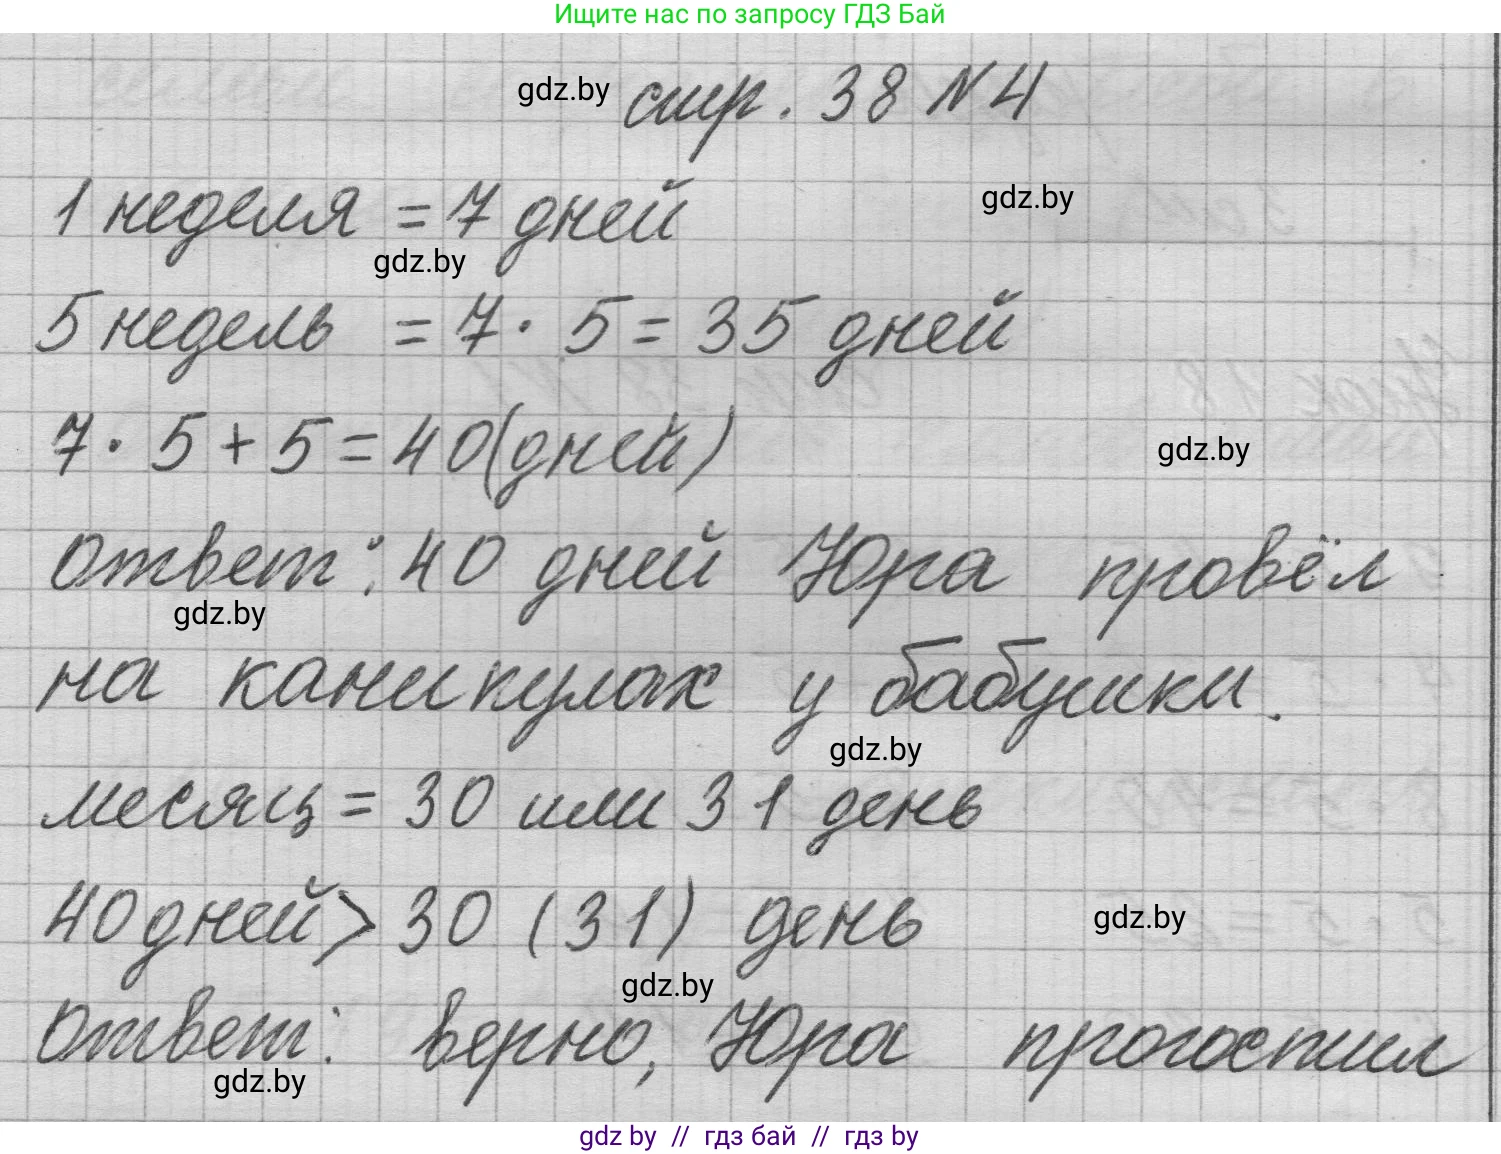 Ищите нас по запросу ГДЗ Бай
gdz.by стр. 38 N 4
1 неделя = 7 дней gdz.by
gdz.by
5 недель = 7 · 5 = 35 дней
7 · 5 + 5 = 40 (дней) gdz.by
Ответ: 40 дней Юра провёл
gdz.by
на каникулах у бабушки.
gdz.by
месяц = 30 или 31 день
40 дней > 30 (31) день gdz.by
gdz.by
Ответ: верно, Юра прогостил
gdz.by
gdz by // гдз бай // гдз by